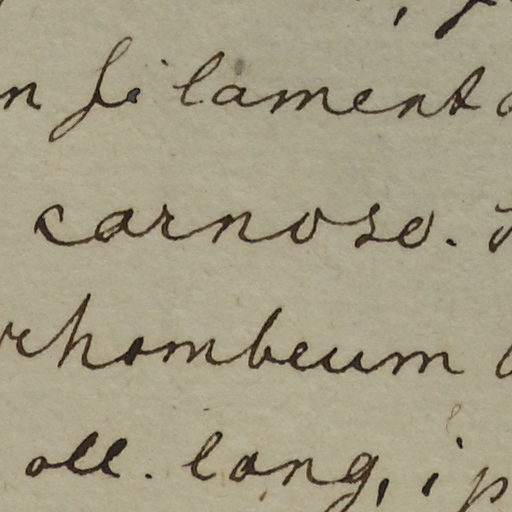 filament
carnoso.
rhombeum
oll. long, i